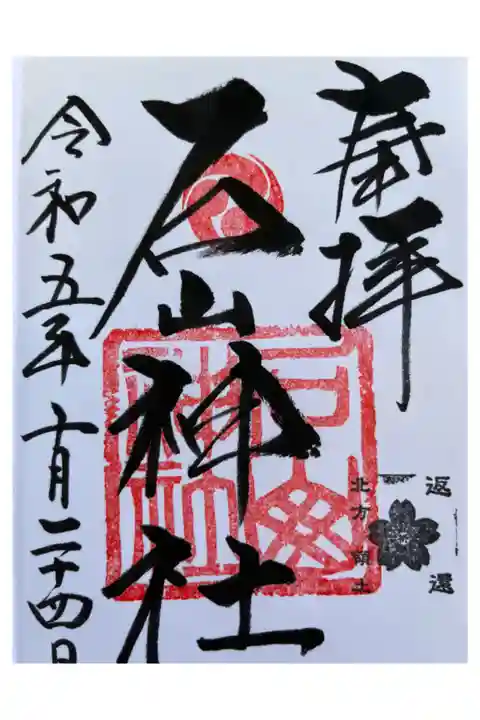 奉拝
石山神社
令和五年十月二十四日
返還
北方領土